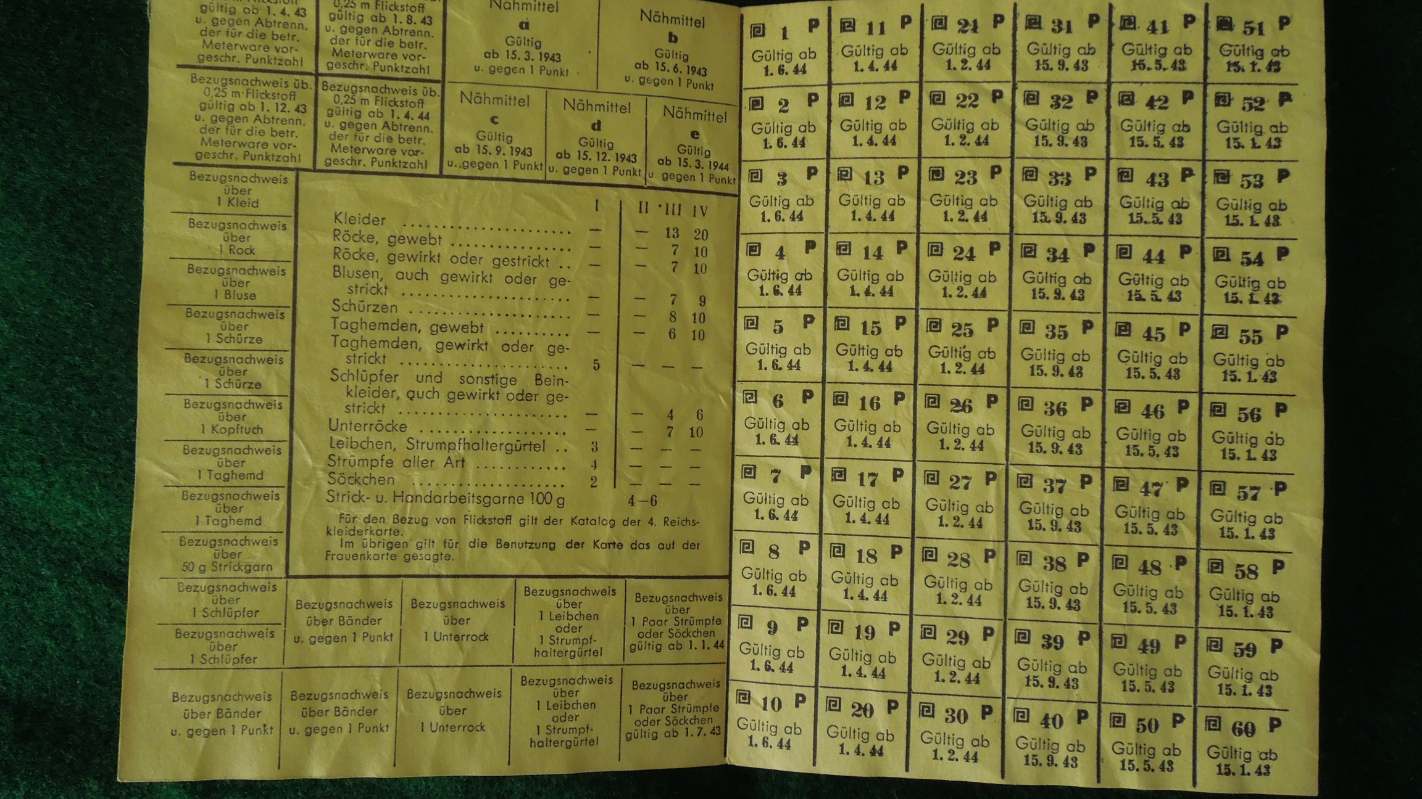 0,25 m Flickstoff
gültig ab 1. 4. 43
u. gegen Abtrenn.
der für die betr.
Meterware vor-
geschr. Punktzahl
0,25 m Flickstoff
gültig ab 1. 8. 43
u. gegen Abtrenn.
der für die betr.
Meterware vor-
geschr. Punktzahl
Nähmittel
a
Gültig
ab 15. 3. 1943
u. gegen 1 Punkt
Nähmittel
b
Gültig
ab 15. 6. 1943
u. gegen 1 Punkt
Bezugsnachweis üb.
0,25 m Flickstoff
gültig ab 1. 12. 43
u. gegen Abtrenn.
der für die betr.
Meterware vor-
geschr. Punktzahl
Bezugsnachweis üb.
0,25 m Flickstoff
gültig ab 1. 4. 44
u. gegen Abtrenn.
der für die betr.
Meterware vor-
geschr. Punktzahl
Nähmittel
c
Gültig
ab 15. 9. 1943
u. gegen 1 Punkt
Nähmittel
d
Gültig
ab 15. 12. 1943
u. gegen 1 Punkt
Nähmittel
e
Gültig
ab 15. 3. 1944
u. gegen 1 Punkt
Bezugsnachweis
über
1 Kleid
Bezugsnachweis
über
1 Rock
Bezugsnachweis
über
1 Bluse
Bezugsnachweis
über
1 Schürze
Bezugsnachweis
über
1 Schürze
Bezugsnachweis
über
1 Kopftuch
Bezugsnachweis
über
1 Taghemd
Bezugsnachweis
über
1 Taghemd
Bezugsnachweis
über
50 g Strickgarn
Bezugsnachweis
über
1 Schlüpfer
Bezugsnachweis
über
1 Schlüpfer
I II III IV
Kleider .......................... — — 13 20
Röcke, gewebt .................. — — 7 10
Röcke, gewirkt oder gestrickt .. — — 7 10
Blusen, auch gewirkt oder ge-
strickt ........................ — — 7 9
Schürzen ....................... — — 8 10
Taghemden, gewebt .......... — — 6 10
Taghemden, gewirkt oder ge-
strickt ........................ 5 — — —
Schlüpfer und sonstige Bein-
kleider, auch gewirkt oder ge-
strickt ........................ — — 4 6
Unterröcke ..................... — — 7 10
Leibchen, Strumpfhaltergürtel .. 3 — — —
Strümpfe aller Art ............ 4 — — —
Söckchen ....................... 2 — — —
Strick- u. Handarbeitsgarne 100 g 4–6
Für den Bezug von Flickstoff gilt der Katalog der 4. Reichs-
kleiderkarte.
Im übrigen gilt für die Benutzung der Karte das auf der
Frauenkarte gesagte.
Bezugsnachweis
über Bänder
u. gegen 1 Punkt
Bezugsnachweis
über
1 Unterrock
Bezugsnachweis
über
1 Leibchen
oder
1 Strumpf-
haltergürtel
Bezugsnachweis
über
1 Paar Strümpfe
oder Söckchen
gültig ab 1. 1. 44
Bezugsnachweis
über Bänder
u. gegen 1 Punkt
Bezugsnachweis
über Bänder
u. gegen 1 Punkt
Bezugsnachweis
über
1 Unterrock
Bezugsnachweis
über
1 Leibchen
oder
1 Strumpf-
haltergürtel
Bezugsnachweis
über
1 Paar Strümpfe
oder Söckchen
gültig ab 1. 7. 43
1 P 11 P 21 P 31 P 41 P 51 P
Gültig ab Gültig ab Gültig ab Gültig ab Gültig ab Gültig ab
1. 6. 44 1. 4. 44 1. 2. 44 15. 9. 43 15. 5. 43 15. 1. 43
2 P 12 P 22 P 32 P 42 P 52 P
Gültig ab Gültig ab Gültig ab Gültig ab Gültig ab Gültig ab
1. 6. 44 1. 4. 44 1. 2. 44 15. 9. 43 15. 5. 43 15. 1. 43
3 P 13 P 23 P 33 P 43 P 53 P
Gültig ab Gültig ab Gültig ab Gültig ab Gültig ab Gültig ab
1. 6. 44 1. 4. 44 1. 2. 44 15. 9. 43 15. 5. 43 15. 1. 43
4 P 14 P 24 P 34 P 44 P 54 P
Gültig ab Gültig ab Gültig ab Gültig ab Gültig ab Gültig ab
1. 6. 44 1. 4. 44 1. 2. 44 15. 9. 43 15. 5. 43 15. 1. 43
5 P 15 P 25 P 35 P 45 P 55 P
Gültig ab Gültig ab Gültig ab Gültig ab Gültig ab Gültig ab
1. 6. 44 1. 4. 44 1. 2. 44 15. 9. 43 15. 5. 43 15. 1. 43
6 P 16 P 26 P 36 P 46 P 56 P
Gültig ab Gültig ab Gültig ab Gültig ab Gültig ab Gültig ab
1. 6. 44 1. 4. 44 1. 2. 44 15. 9. 43 15. 5. 43 15. 1. 43
7 P 17 P 27 P 37 P 47 P 57 P
Gültig ab Gültig ab Gültig ab Gültig ab Gültig ab Gültig ab
1. 6. 44 1. 4. 44 1. 2. 44 15. 9. 43 15. 5. 43 15. 1. 43
8 P 18 P 28 P 38 P 48 P 58 P
Gültig ab Gültig ab Gültig ab Gültig ab Gültig ab Gültig ab
1. 6. 44 1. 4. 44 1. 2. 44 15. 9. 43 15. 5. 43 15. 1. 43
9 P 19 P 29 P 39 P 49 P 59 P
Gültig ab Gültig ab Gültig ab Gültig ab Gültig ab Gültig ab
1. 6. 44 1. 4. 44 1. 2. 44 15. 9. 43 15. 5. 43 15. 1. 43
10 P 20 P 30 P 40 P 50 P 60 P
Gültig ab Gültig ab Gültig ab Gültig ab Gültig ab Gültig ab
1. 6. 44 1. 4. 44 1. 2. 44 15. 9. 43 15. 5. 43 15. 1. 43